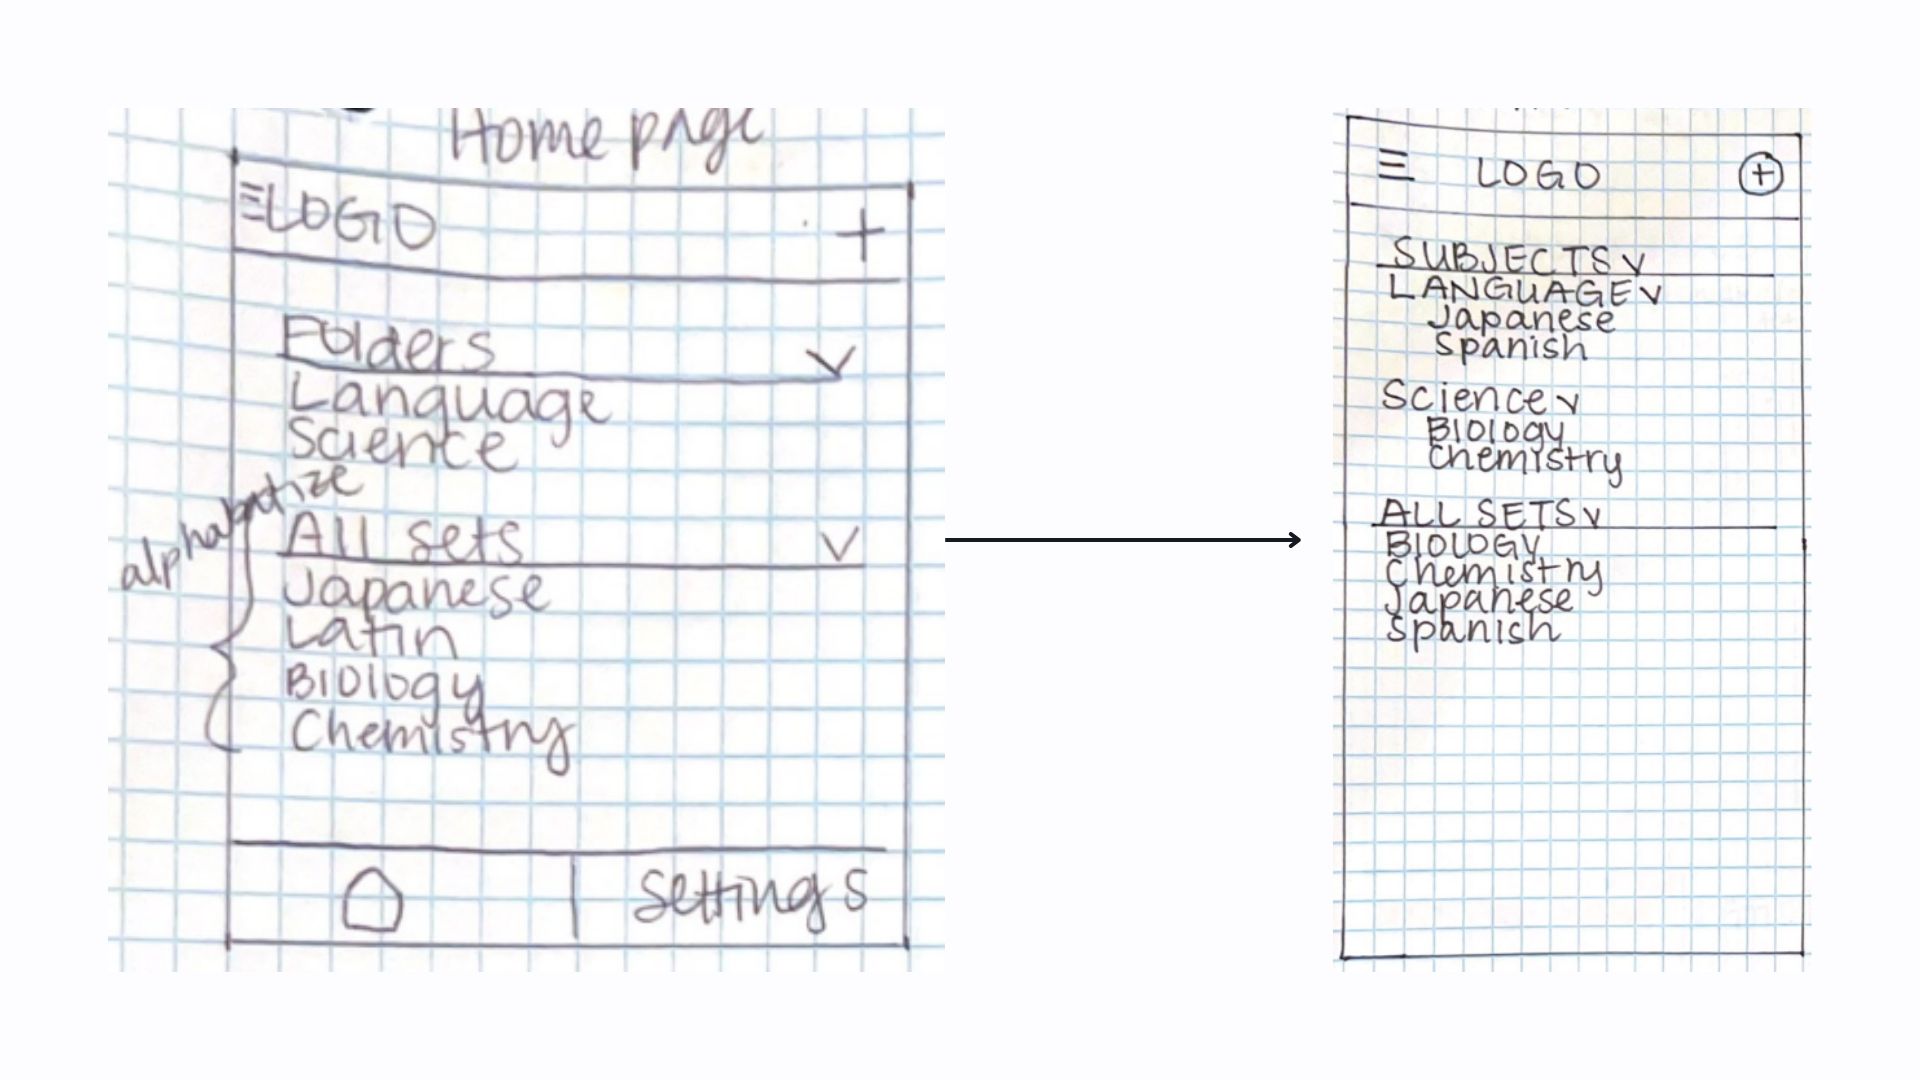 Home page
LOGO +
Folders
Language
Science
alphabatize
All sets
Japanese
Latin
Biology
Chemistry
Settings
LOGO +
SUBJECTS
LANGUAGE
Japanese
Spanish
Science
Biology
Chemistry
ALL SETS
BIOLOGY
Chemistry
Japanese
Spanish